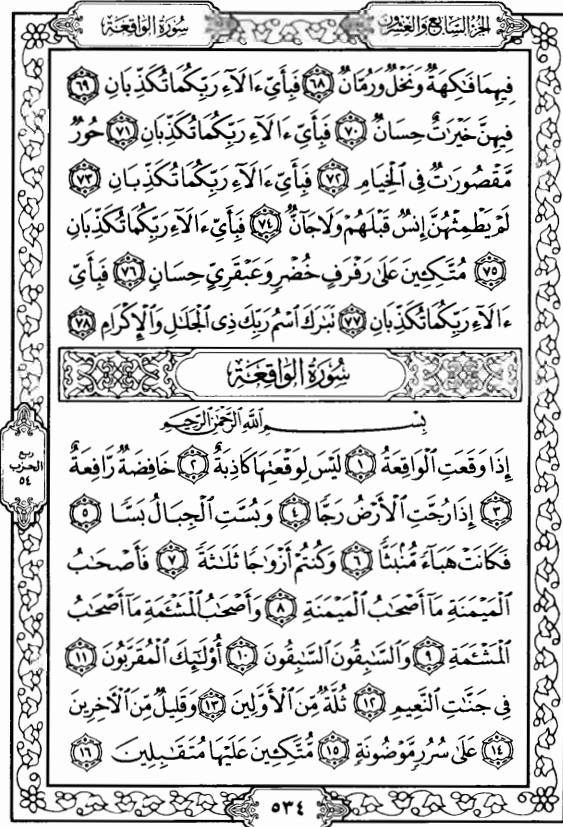 الجزء السابع والعشرون
سورة الواقعة
فِيهِمَا فَٰكِهَةٌ وَنَخْلٌ وَرُمَّانٌ ٦٨ فَبِأَيِّ ءَالَآءِ رَبِّكُمَا تُكَذِّبَانِ ٦٩
فِيهِنَّ خَيْرَٰتٌ حِسَانٌ ٧٠ فَبِأَيِّ ءَالَآءِ رَبِّكُمَا تُكَذِّبَانِ ٧١ حُورٌ
مَّقْصُورَٰتٌ فِي ٱلْخِيَامِ ٧٢ فَبِأَيِّ ءَالَآءِ رَبِّكُمَا تُكَذِّبَانِ ٧٣
لَمْ يَطْمِثْهُنَّ إِنسٌ قَبْلَهُمْ وَلَا جَآنٌّ ٧٤ فَبِأَيِّ ءَالَآءِ رَبِّكُمَا تُكَذِّبَانِ
٧٥ مُتَّكِـِٔينَ عَلَىٰ رَفْرَفٍ خُضْرٍ وَعَبْقَرِيٍّ حِسَانٍ ٧٦ فَبِأَيِّ
ءَالَآءِ رَبِّكُمَا تُكَذِّبَانِ ٧٧ تَبَٰرَكَ ٱسْمُ رَبِّكَ ذِي ٱلْجَلَٰلِ وَٱلْإِكْرَامِ ٧٨
سُورَةُ الوَاقِعَةِ
بِسْمِ ٱللَّهِ ٱلرَّحْمَٰنِ ٱلرَّحِيمِ
إِذَا وَقَعَتِ ٱلْوَاقِعَةُ ١ لَيْسَ لِوَقْعَتِهَا كَاذِبَةٌ ٢ خَافِضَةٌ رَّافِعَةٌ
٣ إِذَا رُجَّتِ ٱلْأَرْضُ رَجًّا ٤ وَبُسَّتِ ٱلْجِبَالُ بَسًّا ٥
فَكَانَتْ هَبَآءً مُّنۢبَثًّا ٦ وَكُنتُمْ أَزْوَٰجًا ثَلَٰثَةً ٧ فَأَصْحَٰبُ
ٱلْمَيْمَنَةِ مَآ أَصْحَٰبُ ٱلْمَيْمَنَةِ ٨ وَأَصْحَٰبُ ٱلْمَشْـَٔمَةِ مَآ أَصْحَٰبُ
ٱلْمَشْـَٔمَةِ ٩ وَٱلسَّٰبِقُونَ ٱلسَّٰبِقُونَ ١٠ أُوْلَٰٓئِكَ ٱلْمُقَرَّبُونَ ١١
فِي جَنَّٰتِ ٱلنَّعِيمِ ١٢ ثُلَّةٌ مِّنَ ٱلْأَوَّلِينَ ١٣ وَقَلِيلٌ مِّنَ ٱلْأَخِرِينَ
١٤ عَلَىٰ سُرُرٍ مَّوْضُونَةٍ ١٥ مُّتَّكِـِٔينَ عَلَيْهَا مُتَقَٰبِلِينَ ١٦
ربع
الحزب
٥٤
٥٣٤